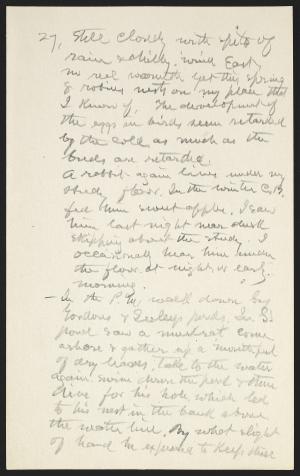 27, Still cloudy with spits of
rain & chilly. wind East,
no real warmth yet this spring
& robins nests on my place that
I know of. The development of
the eggs in birds seem retarded
by the cold as much as the
buds are retarded.
A rabbit again lives under my
study floor. In the winter C.B.
fed him sweet apple. I saw
him last night near dusk
skipping about the study. I
occasionally hear him under
the floor at night or early
morning.
— In the P.M. walk down by
Gordons & Seeleys ponds. In S's
pond saw a muskrat come
ashore & gather up a mouthful
of dry leaves, take to the water
again swim down the pond & then
dive for his hole which led
to his nest in the bank above
the water line. By what slight
of hand he expected to keep those